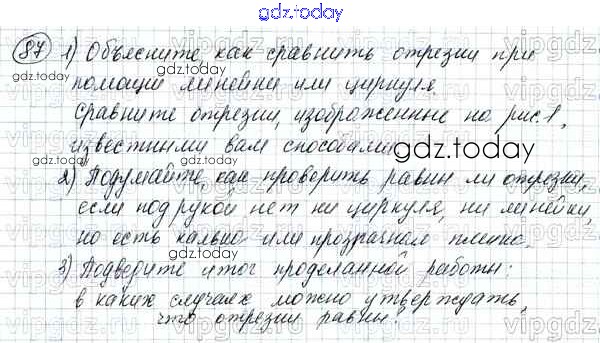 gdz.today
87 1) Объясните, как сравнить отрезки при
gdz.today
помощи линейки или циркуля.
Сравните отрезки, изображенные на рис.1,
известными вам способами.
gdz.today
gdz.today
2) Подумайте, как проверить равны ли отрезки,
если под рукой нет ни циркуля, ни линейки,
но есть калька или прозрачная пленка.
3) Подведите итог проделанной работы:
в каких случаях можно утверждать,
что отрезки равны?
gdz.today